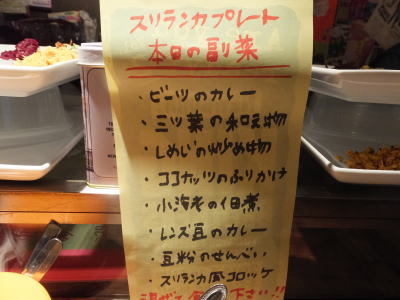 スリランカプレート
本日の副菜
・ビーツのカレー
・三ツ葉の和え物
・しめじの炒め物
・ココナッツのふりかけ
・小海老の佃煮
・レンズ豆のカレー
・豆粉のせんべい
・スリランカ風コロッケ
混ぜて 下さい!!